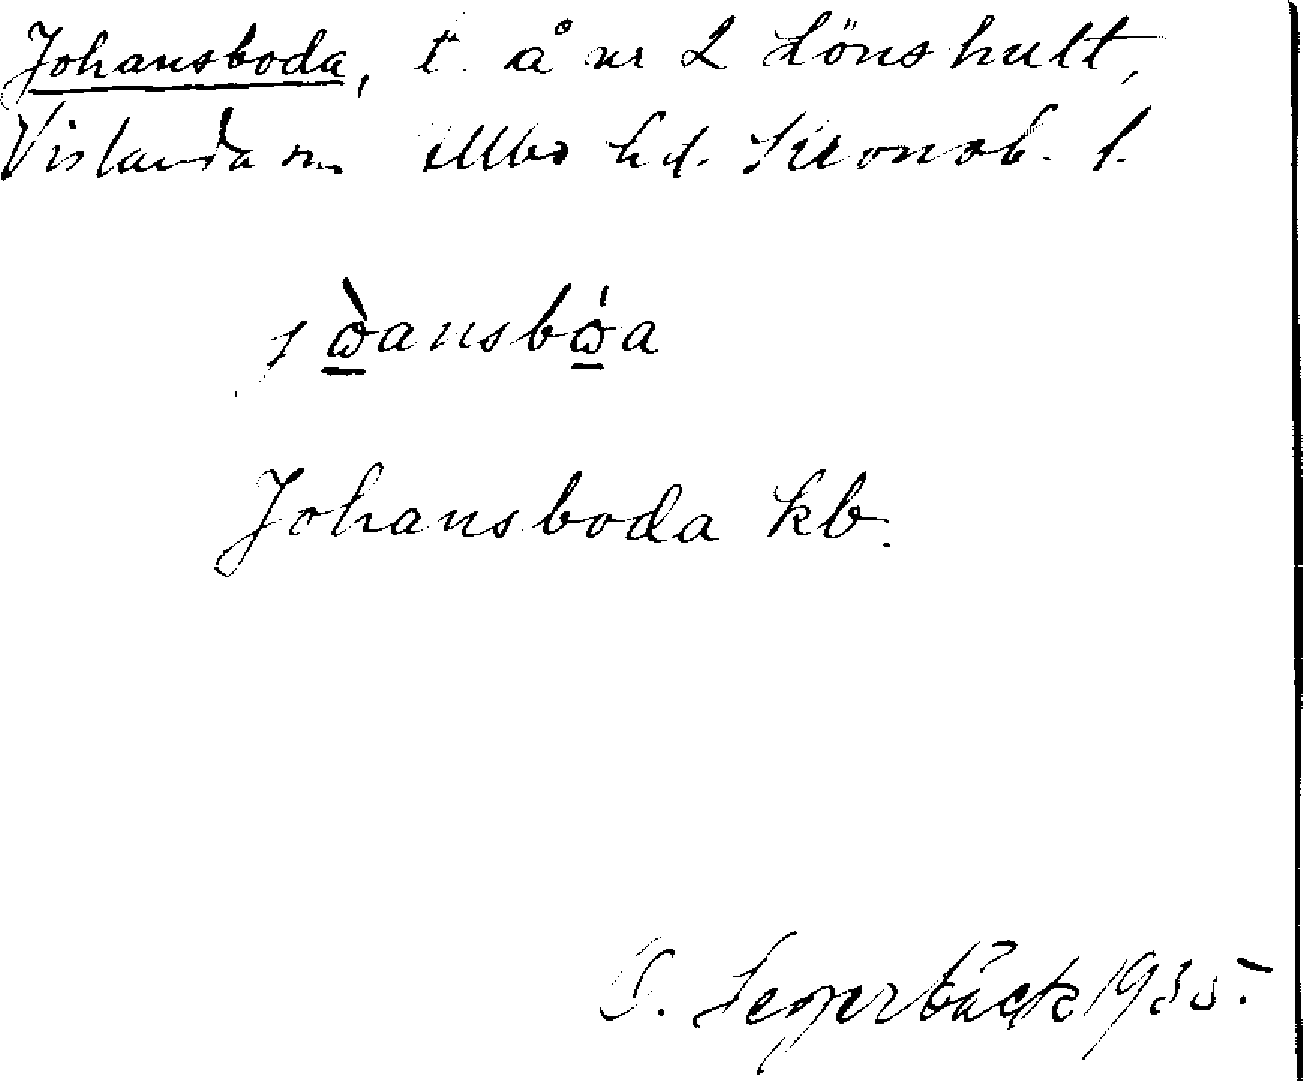 Johansboda, t. å nr 2 Lönshult,
Vislanda sn Allbo hd. Kronob. l.
Johansboda kb.
Segerbäck 1935.